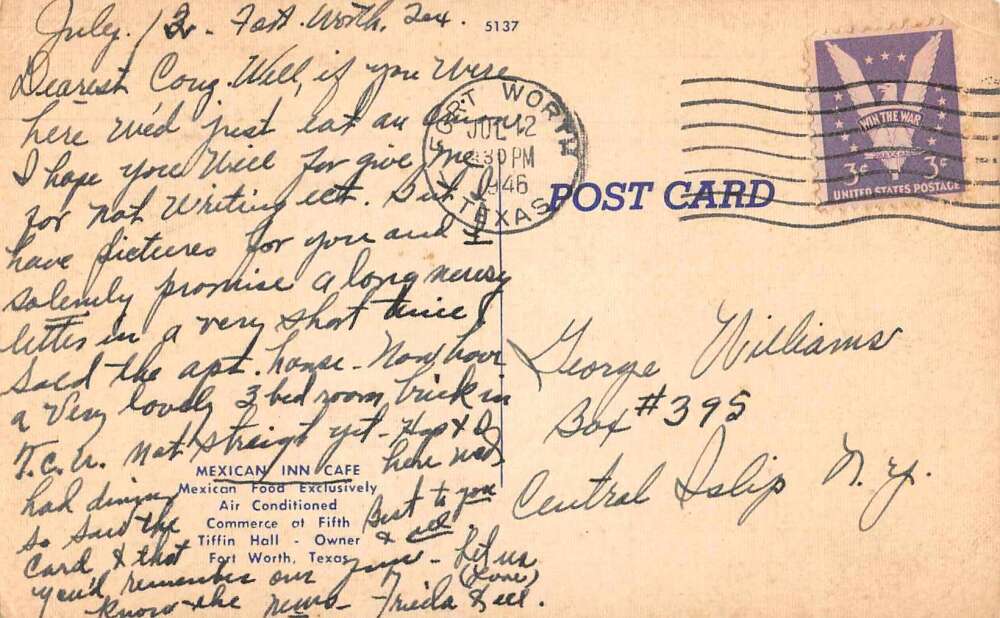 July. 12 - Fort. Worth, Tex.
5137
Dearest Cong. Well, if you were
here we'd just eat an
I hope you will for give me
for not writing ect. But I
have pictures for you and I
solemly promise a long newsy
letter in a very short time I
sold the apt. house - Now have
a very lovely 3 bed room, brick in
T.C.U. Not straigt yet - Hap & I
here Wed,
had dining
so saw the
card & that
you'd remember our
know the news - Frieda & all.
Best to you
& all.
Let us
(Love)
MEXICAN INN CAFE
Mexican Food Exclusively
Air Conditioned
Commerce at Fifth
Tiffin Hall - Owner
Fort Worth, Texas
FORT WORTH
JUL 12
30 PM
1946
TEXAS
POST CARD
WIN THE WAR
3¢ 3¢
UNITED STATES POSTAGE
George Williams
Box #395
Central Islip N.Y.